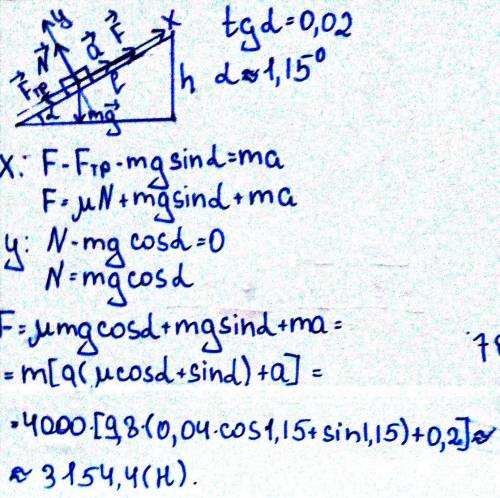 y
N⃗
a⃗
F⃗
x
F⃗тр
l
h
α
mg⃗
tgα=0,02
α≈1,15°
x: F-Fтр-mgsinα=ma
F=μN+mgsinα+ma
y: N-mgcosα=0
N=mgcosα
F=μmgcosα+mgsinα+ma=
=m[g(μcosα+sinα)+a]=
=4000·[9,8·(0,04·cos1,15+sin1,15)+0,2]≈
≈3154,4(Н).